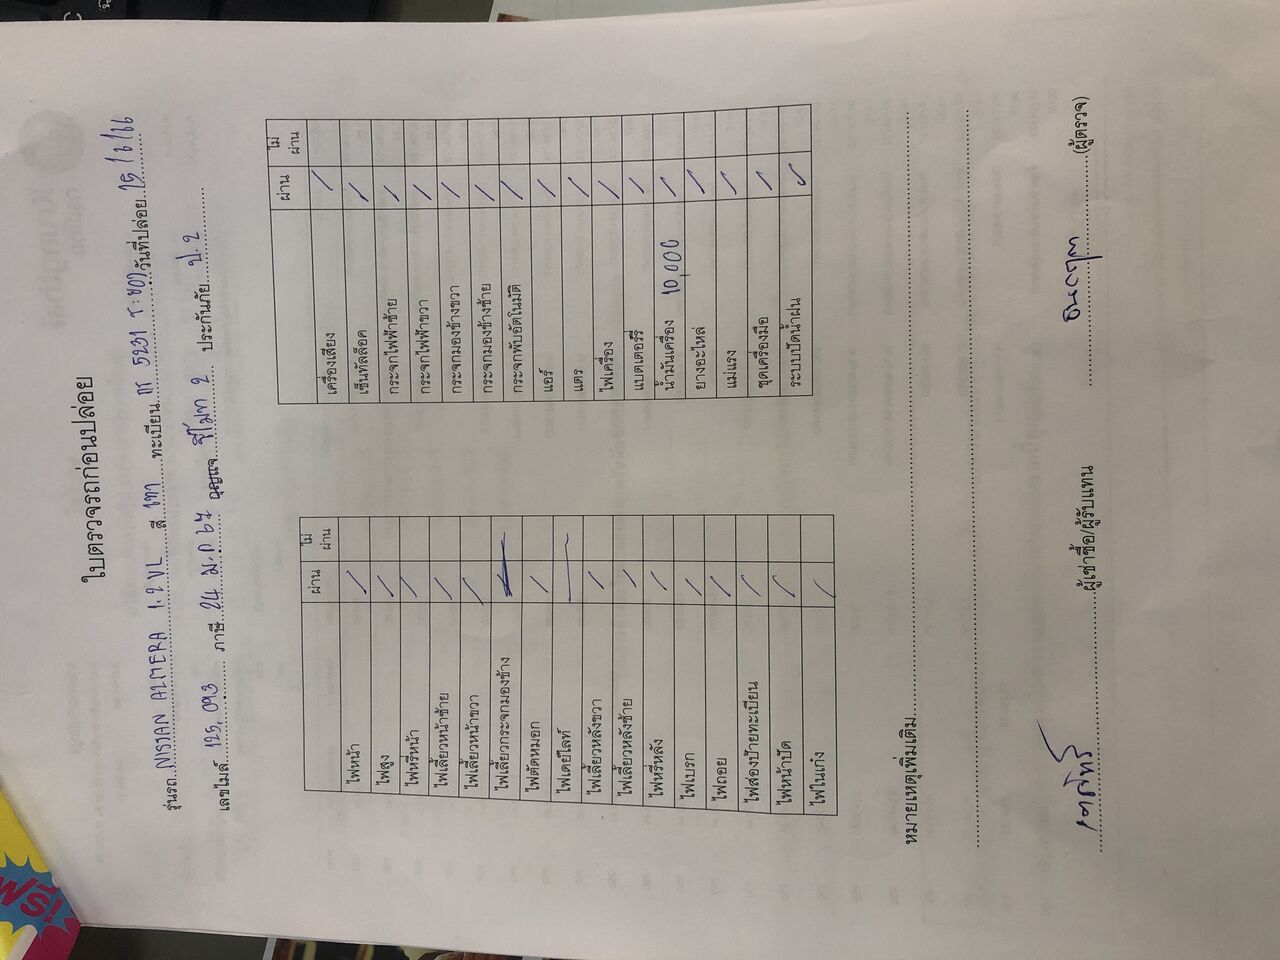 ใบตรวจรถก่อนปล่อย
รุ่นรถ...NISSAN ALMERA 1.2 VL...สี...เทา...ทะเบียน... 5231 ...วันที่ปล่อย...15/6/66
เลขไมล์...125,093...ภาษี...24 ม.ค 67 กุญแจ...รีโมท 2...ประกันภัย...ป.2
ผ่าน ไม่ผ่าน
ไฟหน้า /
ไฟสูง /
ไฟหรี่หน้า /
ไฟเลี้ยวหน้าซ้าย /
ไฟเลี้ยวหน้าขวา /
ไฟเลี้ยวกระจกมองข้าง
ไฟตัดหมอก /
ไฟเดย์ไลท์
ไฟเลี้ยวหลังขวา /
ไฟเลี้ยวหลังซ้าย /
ไฟหรี่หลัง /
ไฟเบรก /
ไฟถอย /
ไฟส่องป้ายทะเบียน /
ไฟหน้าปัด /
ไฟในเก๋ง /
ผ่าน ไม่ผ่าน
เครื่องเสียง /
เซ็นทัลล็อค /
กระจกไฟฟ้าซ้าย /
กระจกไฟฟ้าขวา /
กระจกมองข้างขวา /
กระจกมองข้างซ้าย /
กระจกพับอัตโนมัติ /
แอร์ /
แตร /
ไฟเครื่อง /
แบตเตอร์รี่ /
น้ำมันเครื่อง 10,000 /
ยางอะไหล่ /
แม่แรง /
ชุดเครื่องมือ /
ระบบปัดน้ำฝน ✓
หมายเหตุเพิ่มเติม
ผู้เช่าซื้อ/ผู้รับแทน (ผู้ตรวจ)
ฟรี!